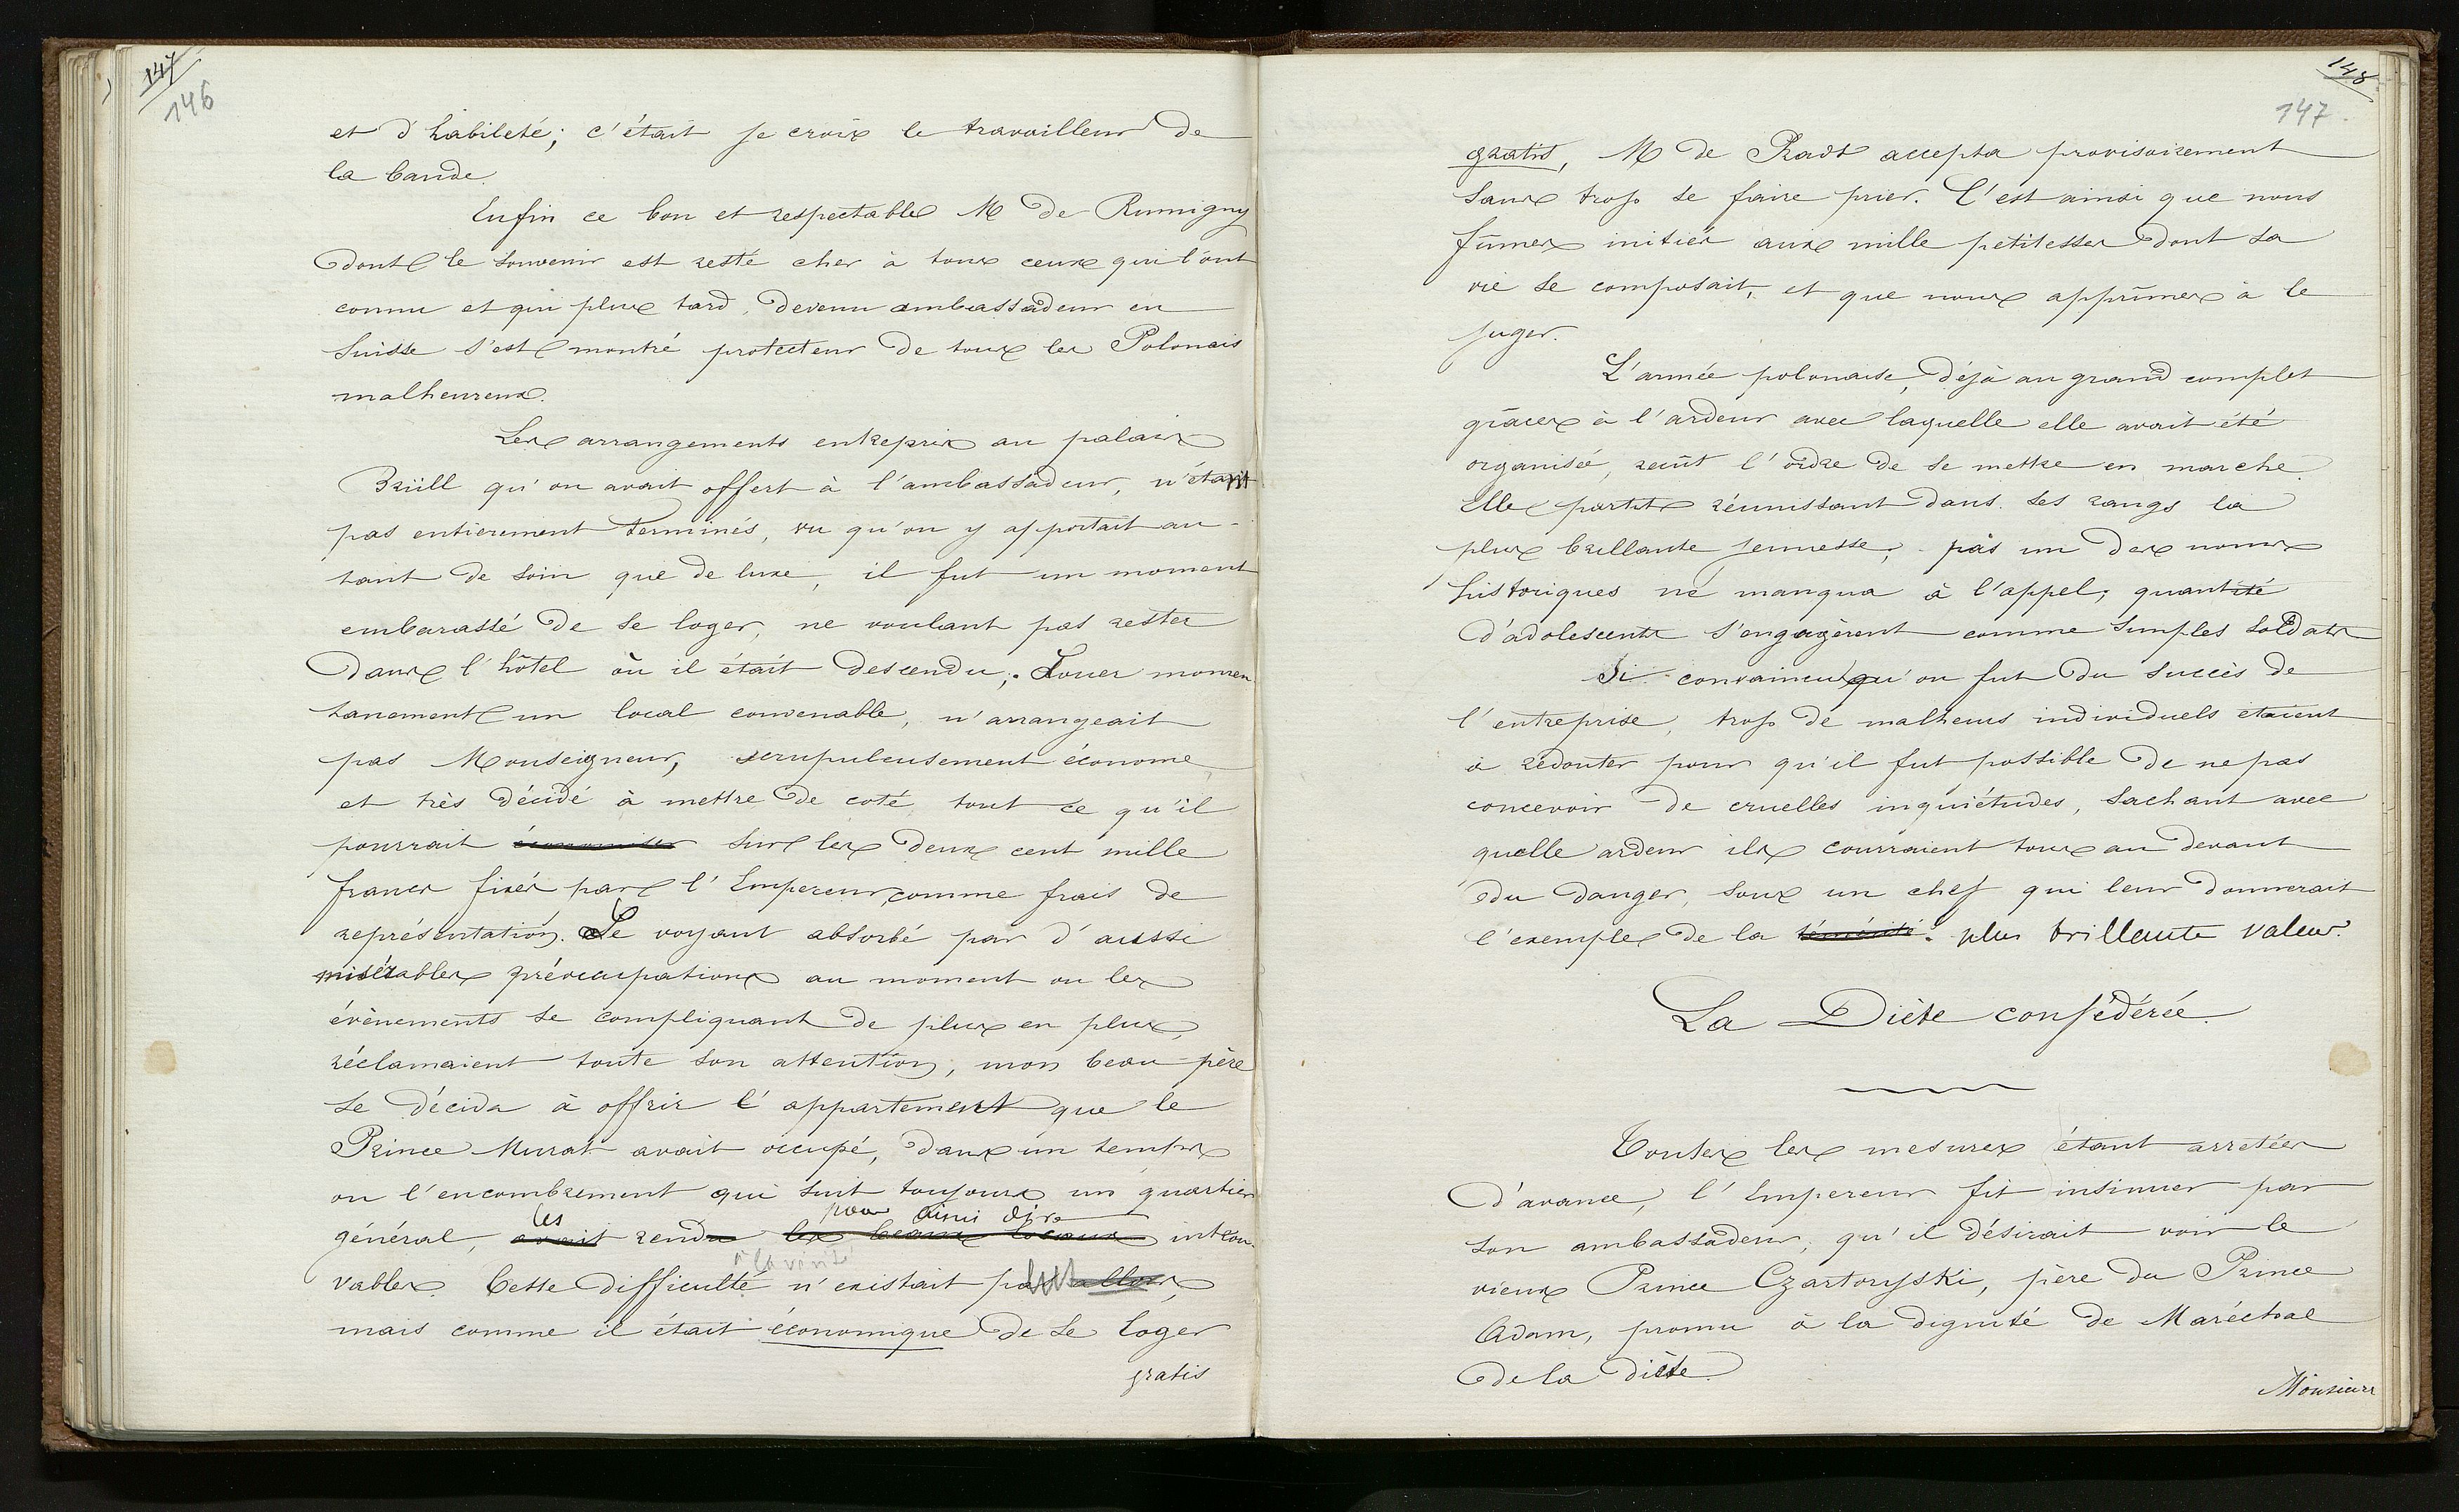 147
146
et d'habileté; c'était je crois le travailleur de
la bande.
Enfin ce bon et respectable M de Rumigny
dont le souvenir est resté cher à tous ceux qui l'ont
connu et qui plus tard, devenu ambassadeur en
Suisse s'est montré protecteur de tous les Polonais
malheureux.
Les arrangements entrepris au palais
Brüll qu'on avait offert à l'ambassadeur, n'étant
pas entierement terminés, vu qu'on y apportait au-
tant de soin que de luxe, il fut un moment
embarassé de se loger, ne voulant pas rester
dans l'hôtel où il était descendu; Louer momen
tanement un local convenable, n'arrangeait
pas Monseigneur, scrupuleusement économe
et très décidé à mettre de coté, tout ce qu'il
pourrait économiser sur les deux cent mille
francs fixés par l'Empereur, comme frais de
représentation. Le voyant absorbé par d'aussi
misérables préocupations au moment ou les
évènements se compliquant de plus en plus,
réclamaient toute son attention, mon beau-père
se décida à offrir l'appartement que le
Prince Murat avait occupé, dans un temps
ou l'encombrement qui suit toujours un quartier
les pour ainsi dire
général, avait rendu les beaux locaux introu-
à la vérité
vables. Cette difficulté n'existait pas
mais comme il était économique de se loger
gratis
148
147.
gratis, M de Pradt accepta provisoirement
sans trop se faire prier. C'est ainsi que nous
fûmes initiés aux mille petitesses dont sa
vie se composait, et que nous apprîmes à le
juger.
L'armée polonaise, déjà au grand complet
grâces à l'ardeur avec laquelle elle avait été
organisée, reçût l'ordre de se mettre en marche.
Elle partit réunissant dans ses rangs la
plus brillante jeunesse; pas un des noms
historiques ne manqua à l'appel; quantité
d'adolescents s'engagèrent comme simples soldats
Si convaincu qu'on fut du succès de
l'entreprise, trop de malheurs individuels etaient
à redouter pour qu'il fut possible de ne pas
concevoir de cruelles inquiétudes, sachant avec
quelle ardeur ils courraient tous au devant
du danger, sous un chef qui leur donnerait
l'exemple de la témérité. plus brillante valeur.
La Diète confédérée.
Toutes les mesures étant arretées
d'avance, l'Empereur fit insinuer par
son ambassadeur, qu'il désirait voir le
vieux Prince Czartoryski, père du Prince
Adam, promu à la dignité de Maréchal
de la diète.
Monsieur